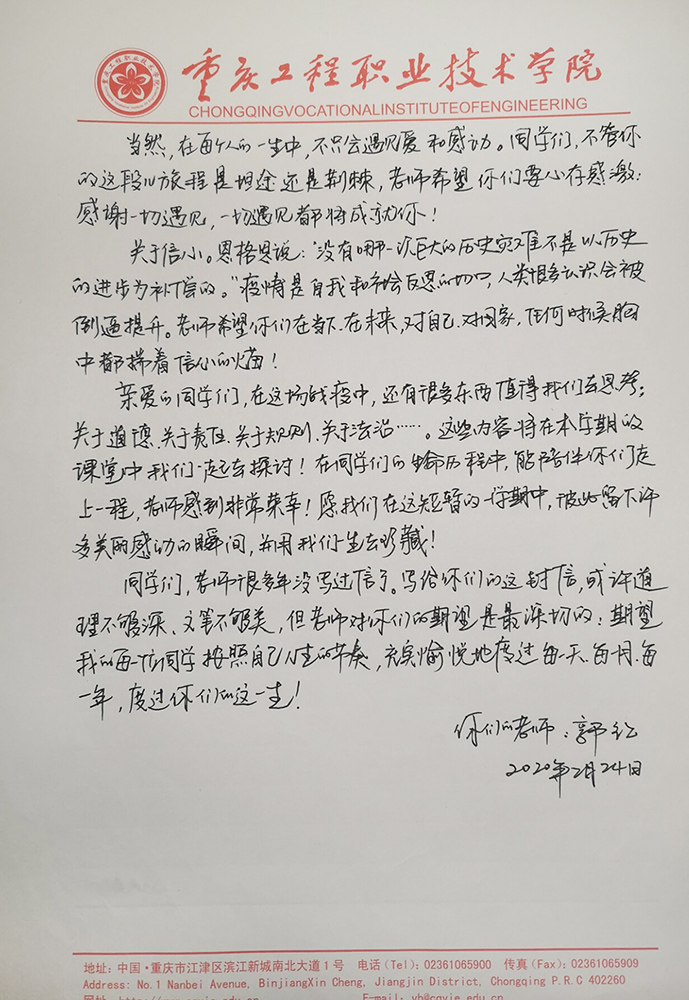 重庆工程职业技术学院
CHONGQINGVOCATIONALINSTITUTEOFENGINEERING
当然,在每个人的一生中,不只会遇见爱和感动。同学们,不管你
的这段儿旅程是坦途还是荆棘,老师希望你们要心存感激:
感谢一切遇见,一切遇见都将成就你!
关于信心。恩格思说:“没有哪一次巨大的历史灾难不是以历史
的进步为补偿的。”疫情是自我和社会反思的切口,人类很多认识会被
倒逼提升。老师希望你们在当下、在未来,对自己、对国家,任何时候胸
中都揣着信心的火苗!
亲爱的同学们,在这场战疫中,还有很多东西值得我们去思考:
关于道德、关于责任、关于规则、关于法治……。这些内容将在本学期的
课堂中我们一起去探讨!在同学们的生命历程中,能陪伴你们走
上一程,老师感到非常荣幸!愿我们在这短暂的一学期中,彼此留下许
多美丽感动的瞬间,并用我们一生去珍藏!
同学们,老师很多年没写过信了。写给你们的这封信,或许道
理不够深、文笔不够美,但老师对你们的期望是最深切的:期望
我的每一位同学按照自己人生的节奏,充实愉悦地度过每一天、每一月、每
一年,度过你们的这一生!
你们的老师:郭红
2020年2月24日
地址:中国·重庆市江津区滨江新城南北大道1号 电话(Tel):02361065900 传真(Fax):02361065909
Address: No.1 Nanbei Avenue, BinjiangXin Cheng, Jiangjin District, Chongqing P.R.C 402260